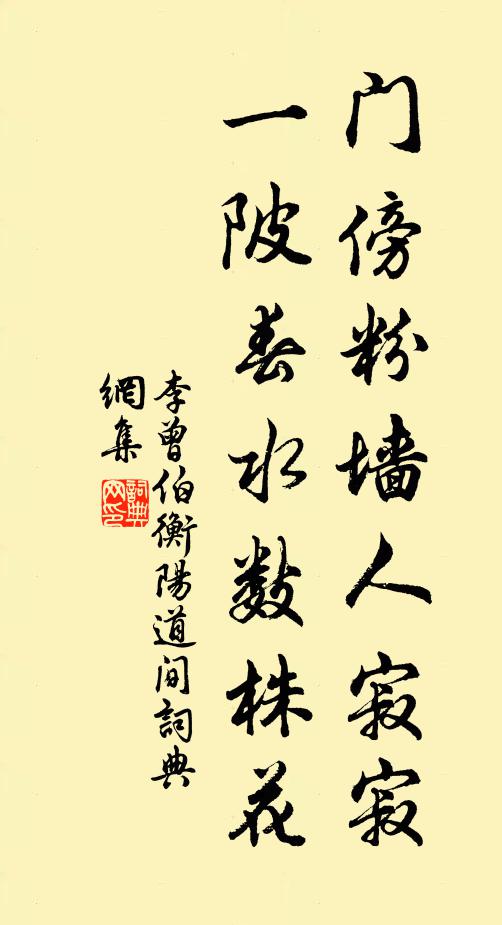 门傍粉墙人寂寂
一陂春水数株花
李曾伯衡陽道间詞典
網集
詞典网印